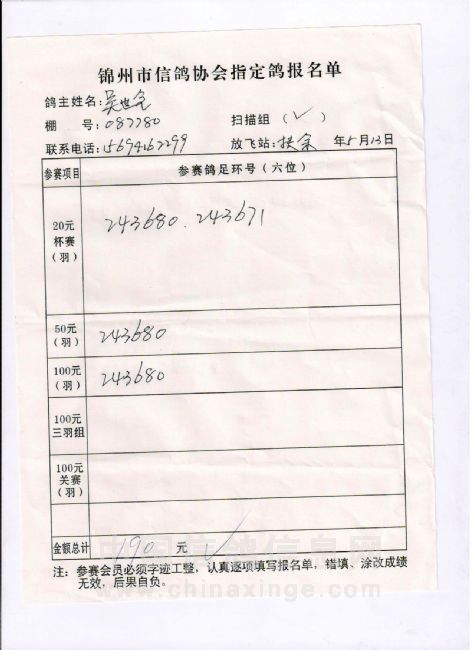 锦州市信鸽协会指定鸽报名单
鸽主姓名：吴世全
棚 号：087780 扫描组（√）
联系电话：15694167299 放飞站：扶余 年5月13日
参赛项目 参赛鸽足环号（六位）
20元杯赛（羽） 243680. 243671
50元（羽） 243680
100元（羽） 243680
100元三羽组
100元关赛（羽）
金额总计 190 元 √
注：参赛会员必须字迹工整，认真逐项填写报名单，错填、涂改成绩
无效，后果自负。
中国信鸽信息网
www.chinaxinge.com